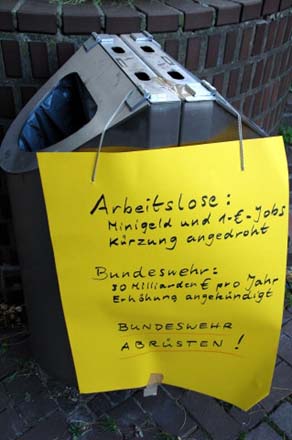 Arbeitslose:
Minigeld und 1-€-Jobs
Kürzung angedroht
Bundeswehr:
30 Milliarden € pro Jahr
Erhöhung angekündigt
BUNDESWEHR
ABRÜSTEN!